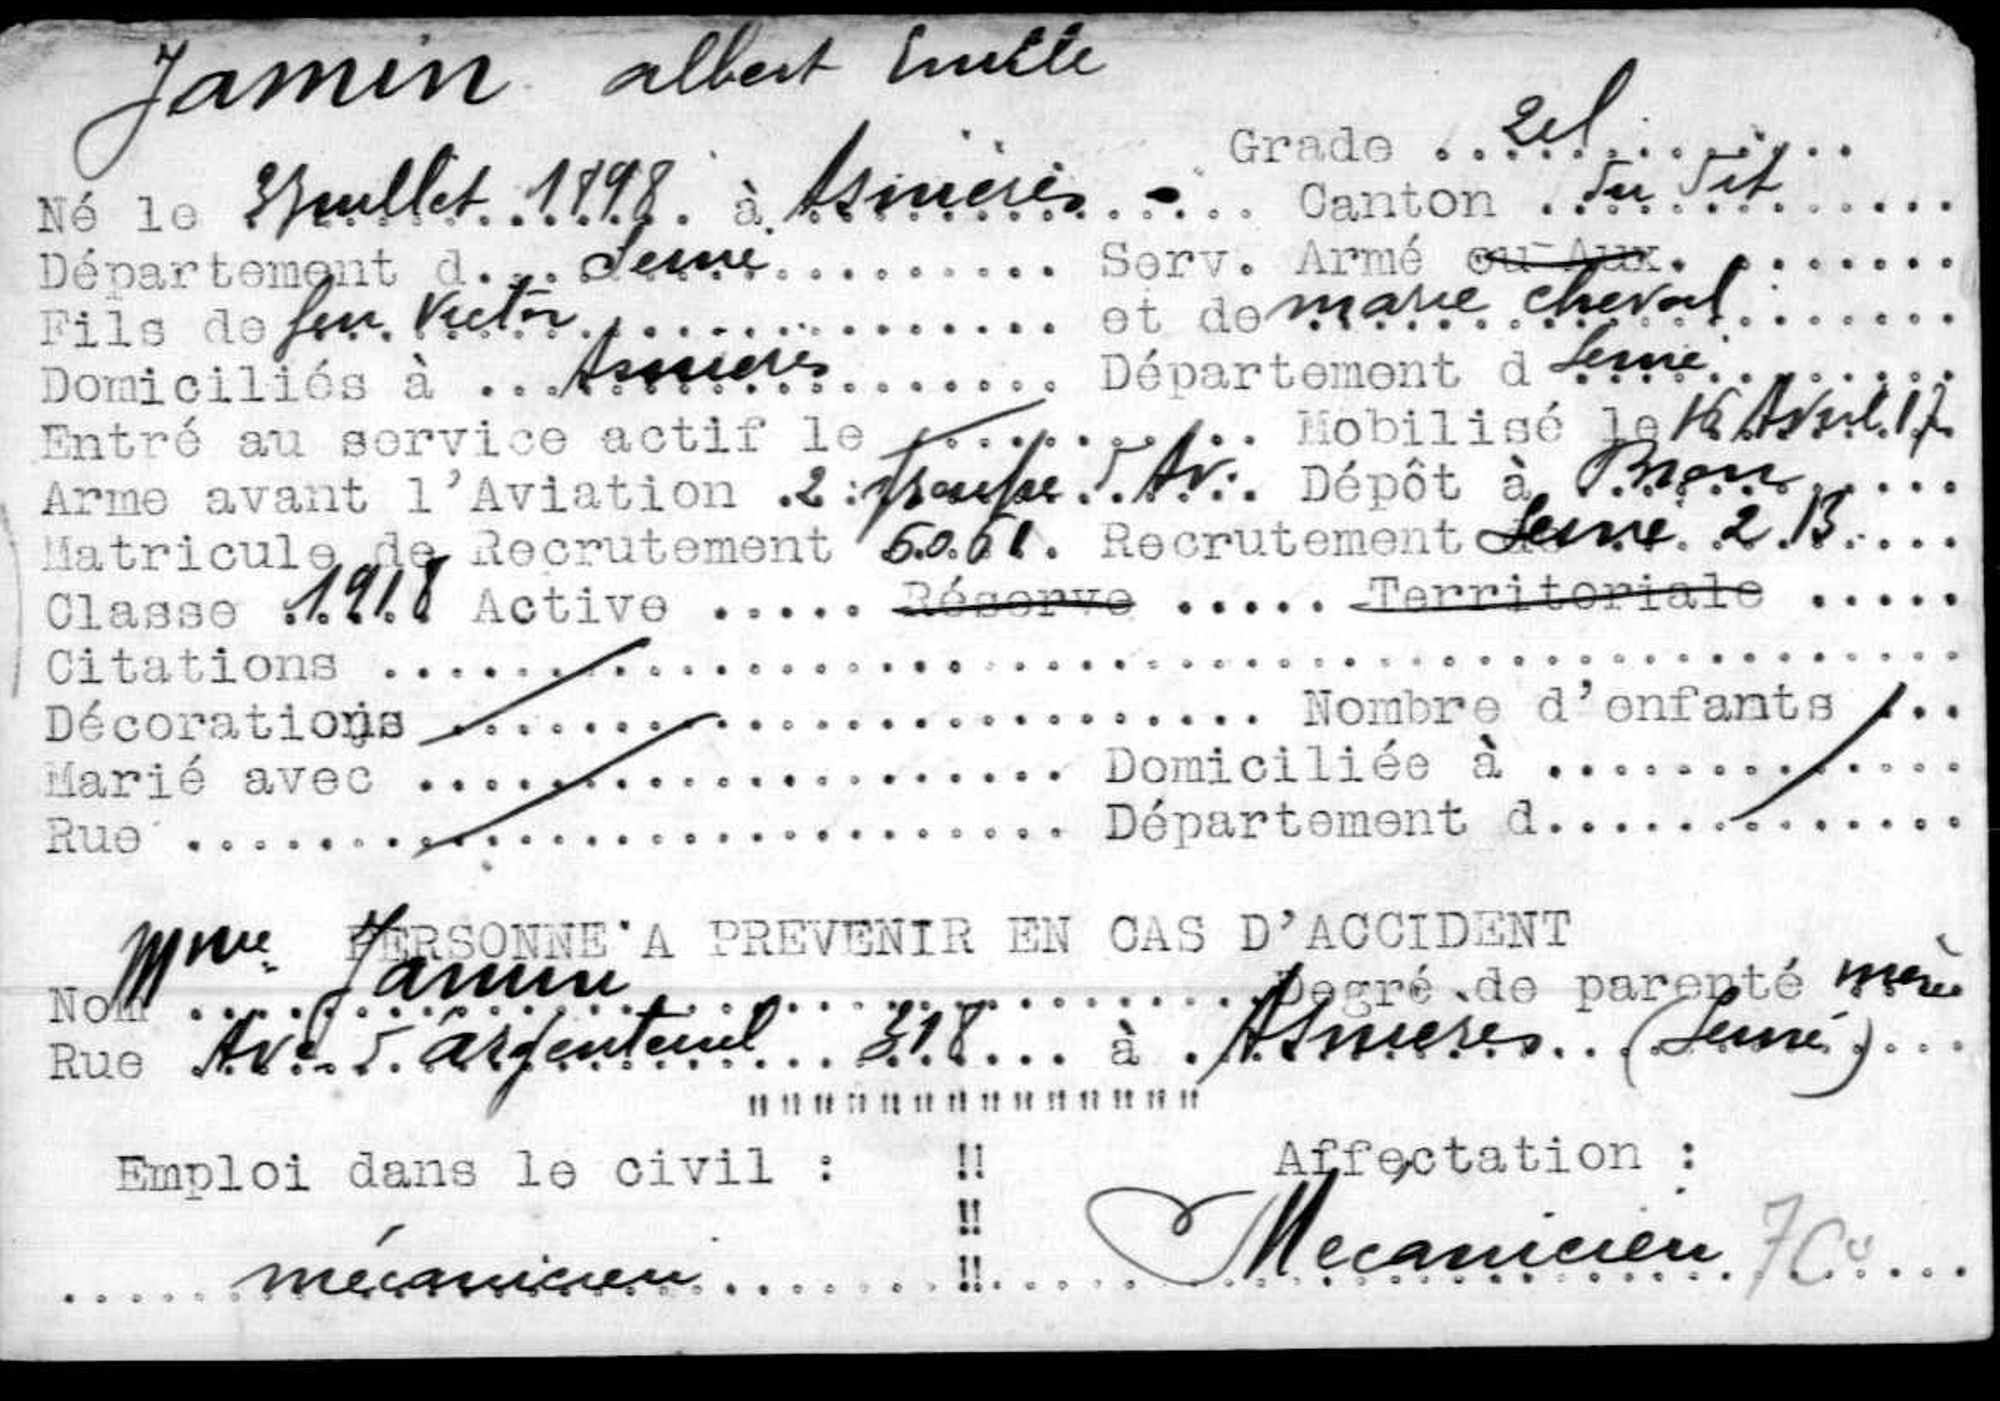 Jamin albert Emile
Grade 2e cl
Né le 3 Juillet 1898 à Asnières Canton du dit
Département d Seine Serv. Armé ou Aux.
Fils de feu Victor et de marie cheval
Domiciliés à Asnieres Département d Seine
Entré au service actif le Mobilisé le 16 Avril 17
Arme avant l'Aviation 2e groupe d'Av. Dépôt à Bron
Matricule de Recrutement 6061 Recrutement Seine 2 B
Classe 1918 Active Réserve Territoriale
Citations
Décorations Nombre d'enfants
Marié avec Domiciliée à
Rue Département d
PERSONNE A PREVENIR EN CAS D'ACCIDENT
Nom Mme Jamin Degré de parenté mère
Rue Ave d'argenteuil 318 à Asnieres (Seine)
Emploi dans le civil : !! Affectation :
!!
mécanicien !! Mecanicien